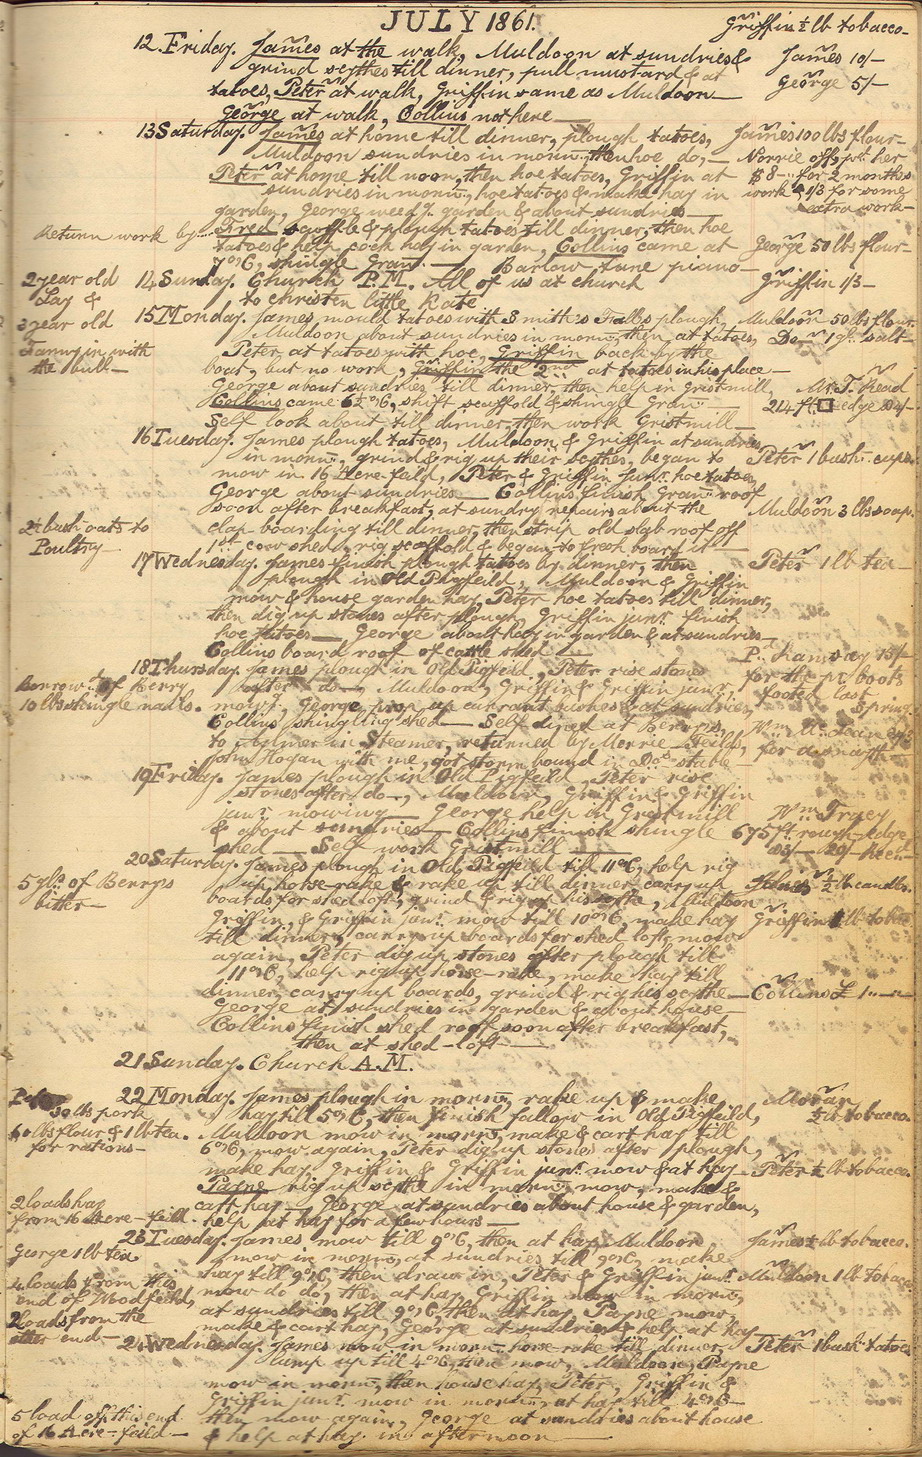 JULY 1861.
Griffin ½ lb tobacco-
12. Friday. James at the walk, Muldoon at sundries &
James 10/-
grind scythes till dinner, pull mustard & at
George 5/-
tatoes, Peter at walk, Griffin same as Muldoon—
George at walk, Collins not here—
13 Saturday. James at home till dinner, plough tatoes,
James 100 lbs flour-
Muldoon sundries in morng. then hoe do,-
Norrie off, pd. her
Peter at home till noon, then hoe tatoes, Griffin at
$8-.. for 2 months
sundries in morng., hoe tatoes & make hay in
work & 1/3 for some
garden, George weed g. garden & about sundries—
extra work-
Return work by Fred scuffle & plough tatoes till dinner, then hoe
tatoes & help cock hay in garden, Collins came at
George 50 lbs flour-
7 o'C, shingle Gran.— Barlow tune piano—
2-year old
14 Sunday. Church P.M. All of us at church
Griffin 1/3-
Lay &
to christen little Kate
3 year old
15 Monday. James mould tatoes with Smith's Falls plough,
Muldoon 50 lbs flour
Muldoon about sundries in morng. then at tatoes,
Do— 1 qt. salt-
Fanny in with
Peter at tatoes with hoe, Griffin back by the
the bull-
boat, but no work, Griffin the 2nd at tatoes in his place—
George about sundries till dinner, then help in Gristmill,
Mr. T. Read
Collins came 6½ o'C, shift scaffold & shingle Gran.—
214 ft. edge
Self look about till dinner, then work Gristmill—
16 Tuesday. James plough tatoes, Muldoon & Griffin at sundries
in morng., grind & rig up their scythes, began to
Peter 1 bush.
mow in 16 Acre-feild, Peter & Griffin junr. hoe tatoes,
George about sundries— Collins finish Gran. roof
soon after breakfast, at sundry repairs about the
Muldoon 3 lbs soap.
2½ bush oats to
clap boarding till dinner, then strip old slab roof off
Poultry—
1st. cow shed, rig scaffold & began to fresh board it—
17 Wednesday. James finish plough tatoes by dinner, then
Peter 1 lb tea—
plough in Old Pigfeild, Muldoon & Griffin
mow & house garden hay, Peter hoe tatoes till dinner,
then dig up stones after plough, Griffin junr. finish
hoe tatoes— George about hay in garden & at sundries—
Collins board roof of cattle shed—
P. Ramsay 15/-
18 Thursday. James plough in Old Pigfeild, Peter rise stones
for the pr. boots
Borrowd. of Berry
after do—, Muldoon, Griffin & Griffin junr.,
footed last
10 lbs shingle nails.
mowg., George prop up currant bushes & at sundries,
Spring
Collins shingling shed— Self dined at Berrys,
Wm. McLean
to Aylmer in Steamer, returned by Merrie Feilds,
for a
John Hogan with me, got storm bound in stable—
19 Friday. James plough in Old Pigfeild, Peter rise
stones after do—, Muldoon, Griffin & Griffin
junr. mowing— George help in Gristmill
Wm. Tracy
& about sundries— Collins finish shingle
675 ft rough-edge
shed— Self work Gristmill—
20 Saturday. James plough in Old Pigfeild till 11 o'C, help rig
5 gls. of Berry's
up horse-rake & rake up till dinner, carry up
½ lb candls.
bitter—
boards for shed loft, grind & rig up his scythe, Muldoon
Griffin, & Griffin junr. mow till 10 o'C, make hay
Griffin 1 lb tobco
till dinner, carry up boards for shed loft, mow
again, Peter dig up stones after plough till
11 o'C, help rig up horse-rake, make hay till
dinner, carry up boards, grind & rig his scythe—
Collins £ 1..-..-
George at sundries in garden & about house—
Collins finish shed roof soon after breakfast,
then at shed-loft—
21 Sunday. Church A.M.
22 Monday. James plough in morng., rake up & make
Moran
30 lbs pork
hay till 5 o'C, then finish fallow in Old Pigfeild,
½ lb tobacco.
60 lbs flour & 1 lb tea.
Muldoon mow in morng., make & cart hay till
for rations-
6 o'C, mow again, Peter dig up stones after plough,
make hay, Griffin & Griffin junr. mow & at hay—
Peter ½ lb tobacco.
Payne rig up scythe in morng., mow, make &
2 loads hay
cart hay— George at sundries about house & garden,
from 16 Acre-feild.
help at hay for a few hours—
23 Tuesday. James mow till 9 o'C, then at hay, Muldoon,
James ½ lb tobacco.
George 1 lb tea
mow in morng., at sundries till 9 o'C, make
hay till 9 o'C, then draw in, Peter & Griffin junr.
Muldoon 1 lb tobacco
4 loads from this
mow do do, then at hay, Griffin mow in morng.,
end of Woodfeild,
at sundries till 9 o'C, then at hay, Payne mow,
2 loads from the
make & cart hay, George at sundries & help at hay
other end—
24 Wednesday. James mow in morng., horse rake till dinner,
Peter 1 bush tatoes
lump up till 4 o'C, then mow, Muldoon, Payne
mow in morng., then house hay, Peter, Griffin &
Griffin junr. mow in morng., at hay till 4 o'C—
5 load off this end
then mow again, George at sundries about house
of 16 Acre-feild—
& help at hay in afternoon—